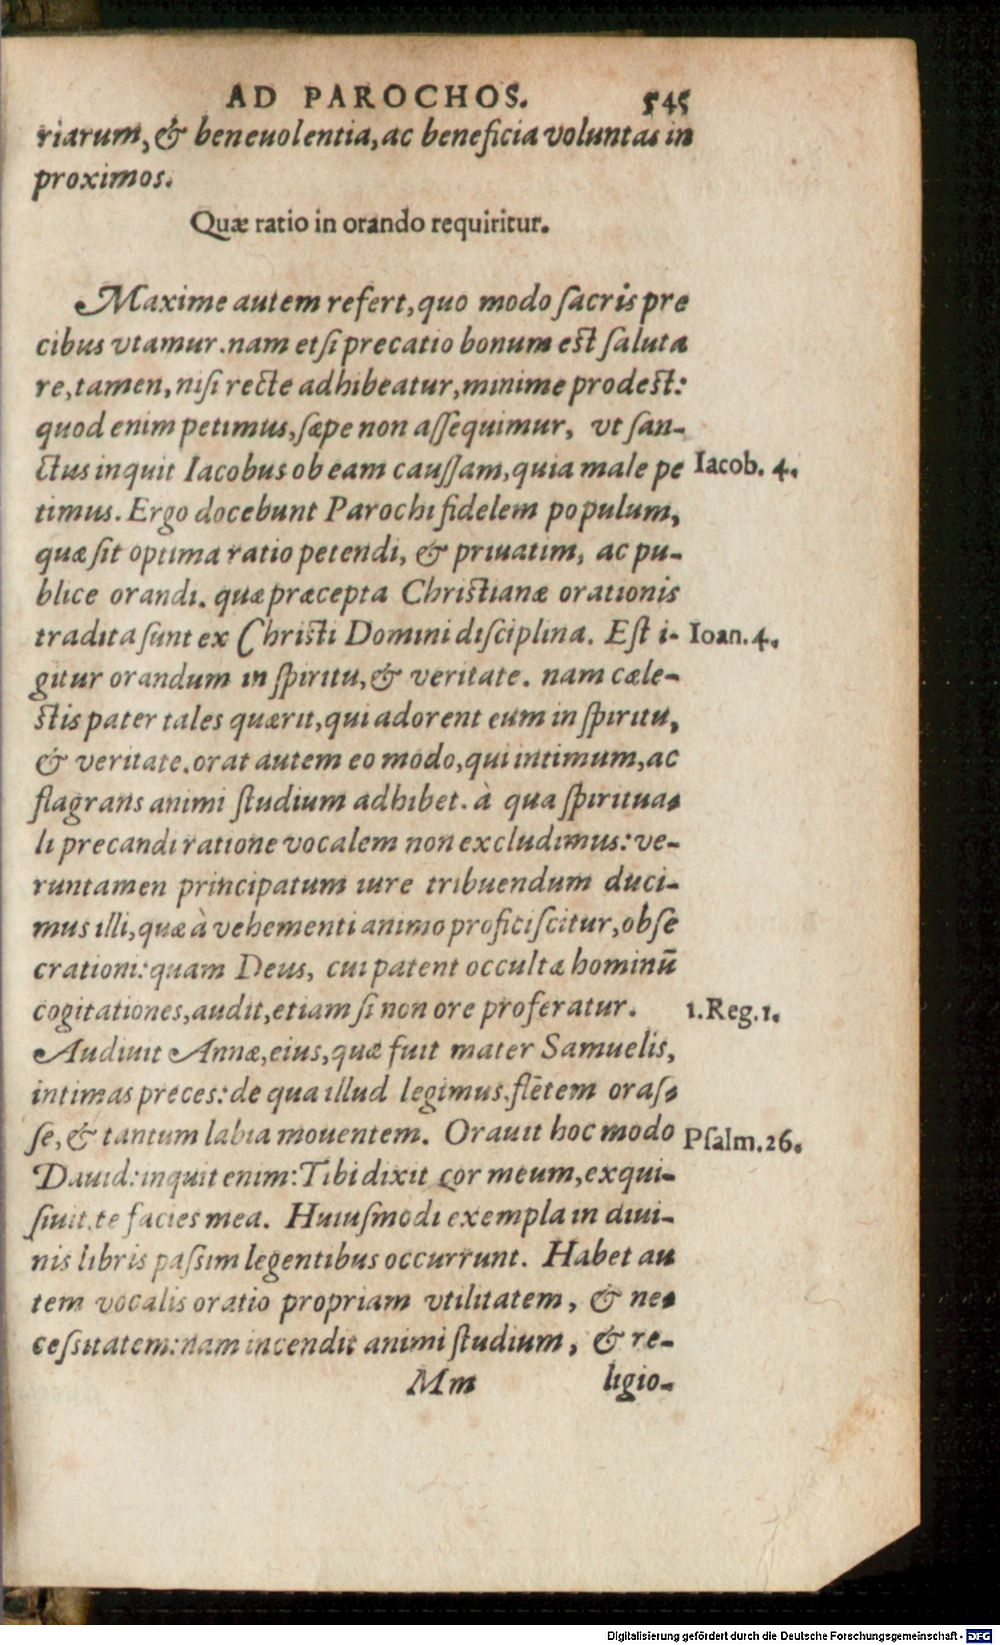 AD PAROCHOS. 545
riarum, & beneuolentia, ac beneficia voluntas in
proximos.
Quæ ratio in orando requiritur.
Maxime autem refert, quo modo ſacris pre
cibus vtamur. nam etſi precatio bonum eſt ſaluta
re, tamen, niſi recte adhibeatur, minime prodeſt:
quod enim petimus, ſæpe non aſſequimur, vt ſan-
ctus inquit Iacobus ob eam cauſſam, quia male pe Iacob. 4.
timus. Ergo docebunt Parochi fidelem populum,
quæ ſit optima ratio petendi, & priuatim, ac pu-
blice orandi. quæ præcepta Chriſtianæ orationis
tradita ſunt ex Chriſti Domini diſciplina. Eſt i- Ioan. 4.
gitur orandum in ſpiritu, & veritate. nam cæle-
ſtis pater tales quærit, qui adorent eum in ſpiritu,
& veritate. orat autem eo modo, qui intimum, ac
flagrans animi ſtudium adhibet. à qua ſpiritua-
li precandi ratione vocalem non excludimus: ve-
runtamen principatum iure tribuendum duci-
mus illi, quæ à vehementi animo proficiſcitur, obſe
crationi: quam Deus, cui patent occultæ hominū
cogitationes, audit, etiam ſi non ore proferatur. 1. Reg. 1.
Audiuit Annæ, eius, quæ fuit mater Samuelis,
intimas preces: de qua illud legimus, flētem oraſ-
ſe, & tantum labia mouentem. Orauit hoc modo Pſalm. 26.
Dauid: inquit enim: Tibi dixit cor meum, exqui-
ſiuit te facies mea. Huiuſmodi exempla in diui-
nis libris paſſim legentibus occurrunt. Habet au
tem vocalis oratio propriam vtilitatem, & ne-
ceſſitatem: nam incendit animi ſtudium, & re-
Mm ligio-
Digitalisierung gefördert durch die Deutsche Forschungsgemeinschaft - DFG